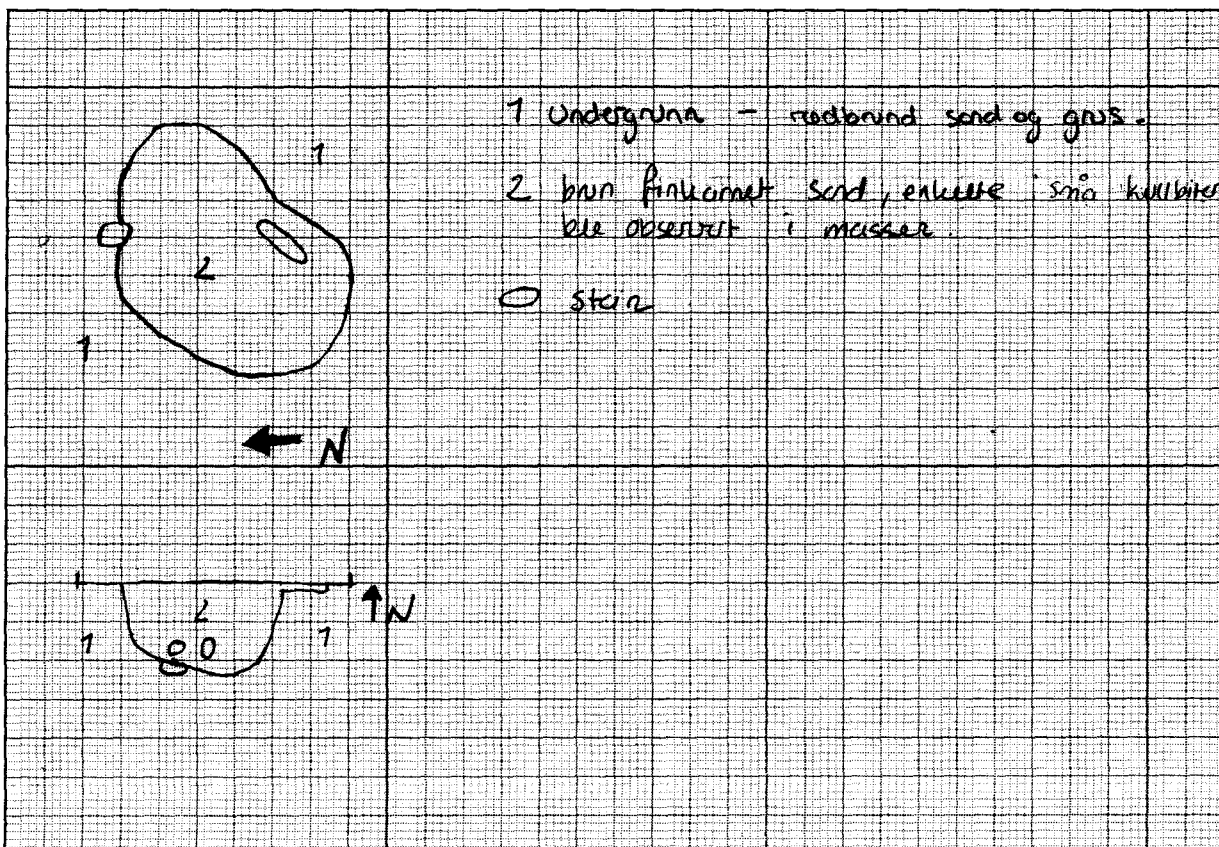 1
1 Undergrunn - rødbrund sand og grus.
2 brun finkornet sand, enkelte små kullbiter
ble observert i massen.
2
stein
1
N
2
N
1
1